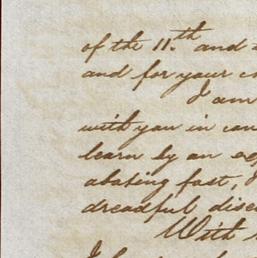 of the 11.th and
and for your
I am
with you in
learn by an
abating fast,
dreadful
With